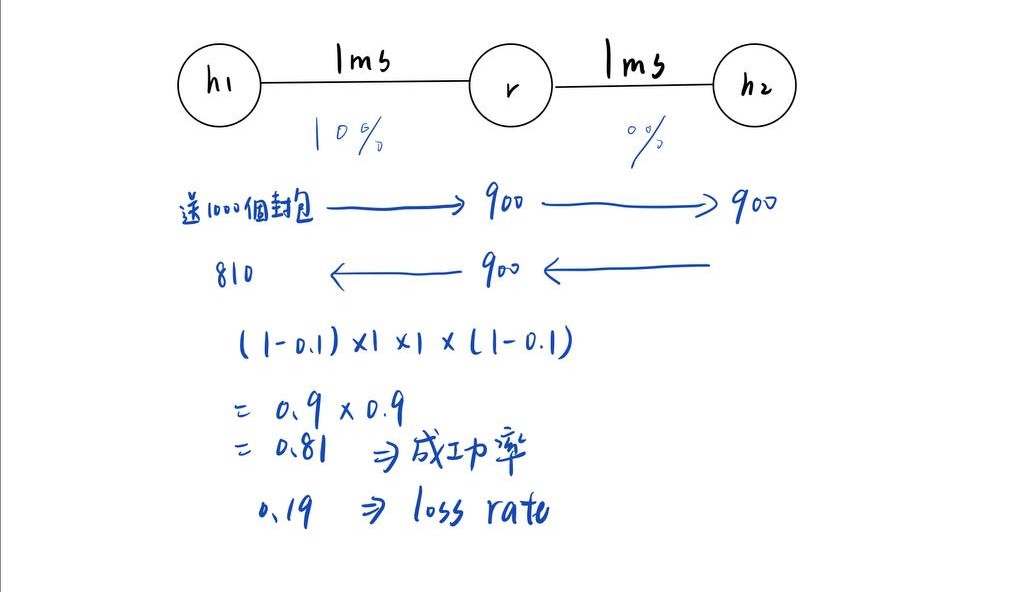 1ms 1ms
h1 r h2
10% 0%
送1000個封包 → 900 → 900
810 ← 900 ←
(1-0.1)×1×1×(1-0.1)
= 0.9 × 0.9
= 0.81 ⇒ 成功率
0.19 ⇒ loss rate